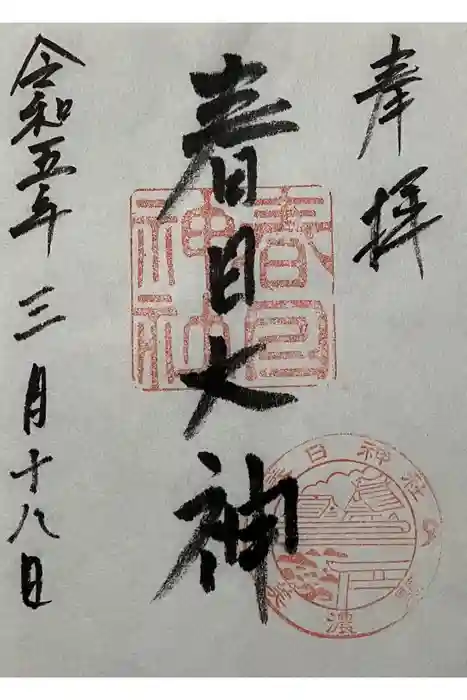 奉拝
春日大神
令和五年三月十八日
春日
神社
春日神社